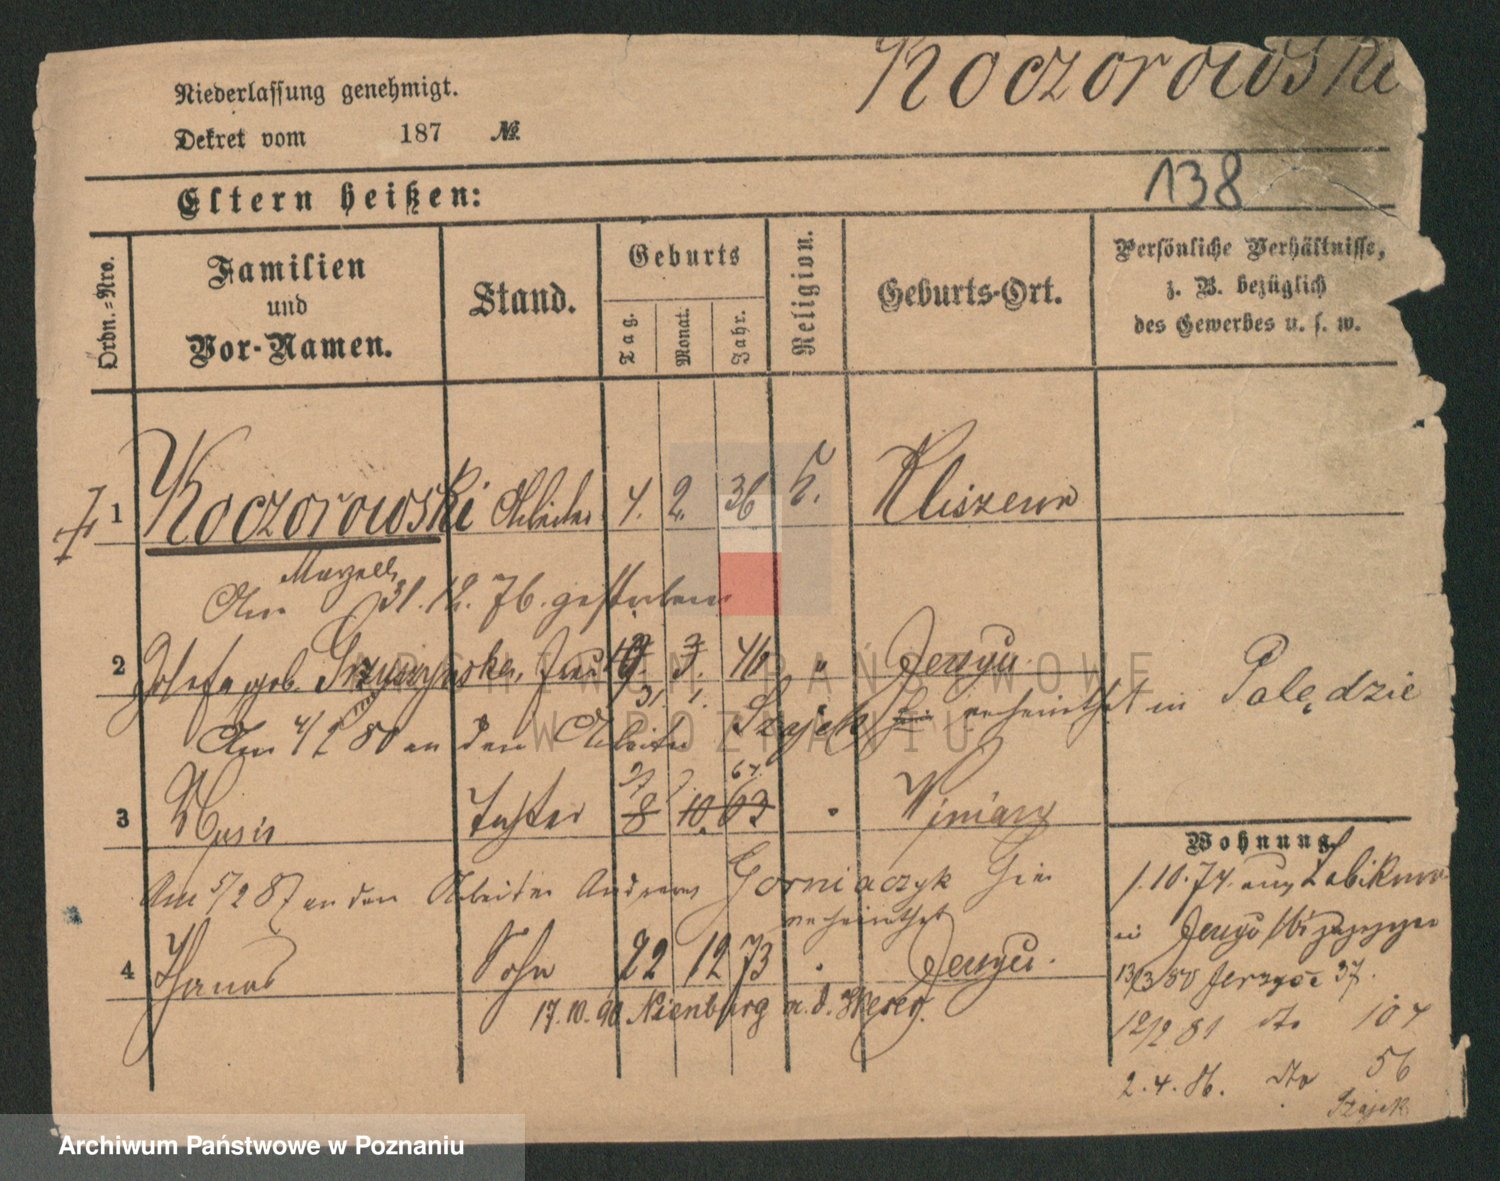 Koczorowski
Niederlassung genehmigt.
Dekret vom 187 №
138
Eltern heißen:
Ordn.-Nro.
Familien
und
Vor-Namen.
Stand.
Geburts
Tag.
Monat.
Jahr.
Religion.
Geburts-Ort.
Persönliche Verhältnisse,
z. B. bezüglich
des Gewerbes u. s. w.
1 Koczorowski Arbeiter 4. 2. 36 k.
Marzell
Am 31.12.76. gestorben
2 Josefa geb. Frau 46 " Jerzyce
31. 1.
Am 4/2 80 an den Arbeiter Szajek verheirathet in Palędzie
27 64.
3 Tochter 8 10. 63 " Winiary
Am 5/2 87 an den Arbeiter Andreas Gorniaczyk hier
verheirathet
4 Thomas Sohn 22 12 73 " Jerzyce.
17.10.90 Nienburg a. d. Weser.
Wohnung
1.10.74. aus
in Jerzyce
13/3 80 Jerzyce 37.
12/2 81 dto 107
2.4.86. dto 56
Szajek
ARCHIWUM PAŃSTWOWE
W POZNANIU
Archiwum Państwowe w Poznaniu